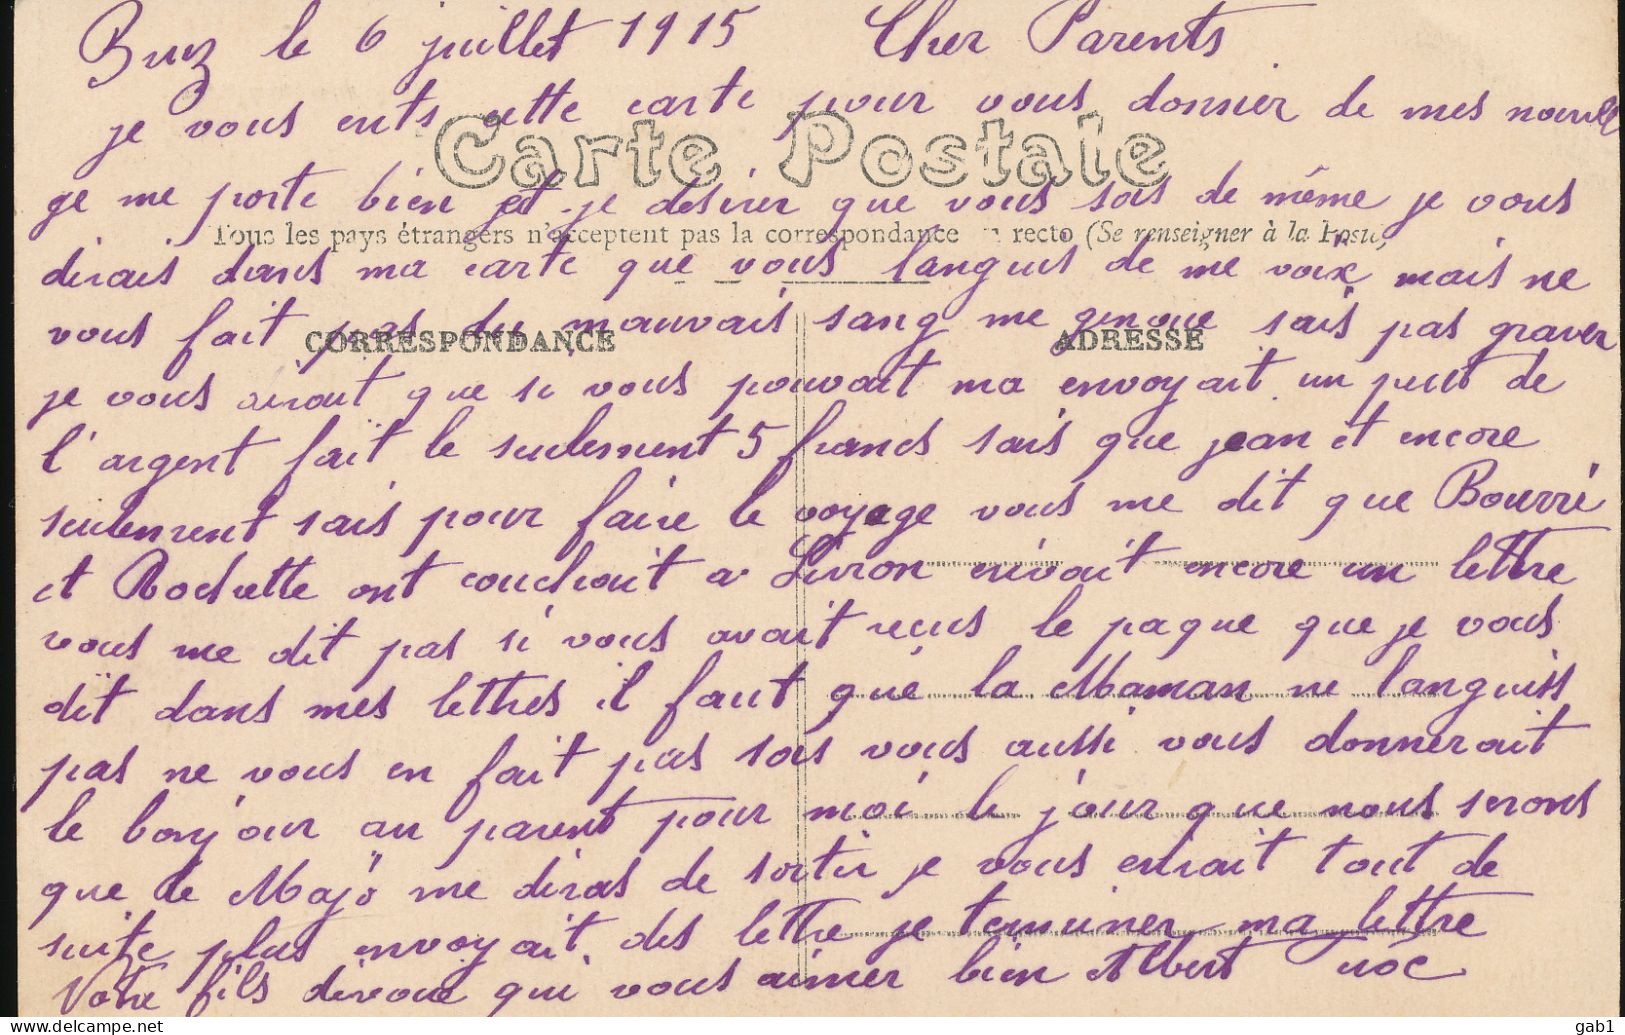 Bruz le 6 juillet 1915 Cher Parents
je vous ents cette carte pour vous donnier de mes nouvell
Carte Postale
ge me porte bien et je desirer que vous sois de même je vous
Tous les pays étrangers n'acceptent pas la correspondance recto (Se renseigner à la Poste)
dirais dans ma carte que vous languis de me voix mais ne
vous fait pas du mauvais sang me genoue sais pas graver
CORRESPONDANCE ADRESSE
je vous dirait que si vous pouvait ma envoyait un peut de
l'argent fait le seulement 5 francs sais que jean et encore
seulement sais pour faire le voyage vous me dit que Bourré
et Rochette ont couchait a Livron envoit encore un lettre
vous me dit pas si vous avait recus le paque que je vous
dit dans mes lettres il faut que la Maman ne languiss
pas ne vous en fait pas sois vous aussi vous donnerait
le bonjour au parent pour moi le jour que nous serons
que le Majo me diras de sortir je vous erirait tout de
suite plus envoyait des lettre je terminer ma lettre
Votre fils divoue qui vous aimer bien Albert
gab1
delcampe.net